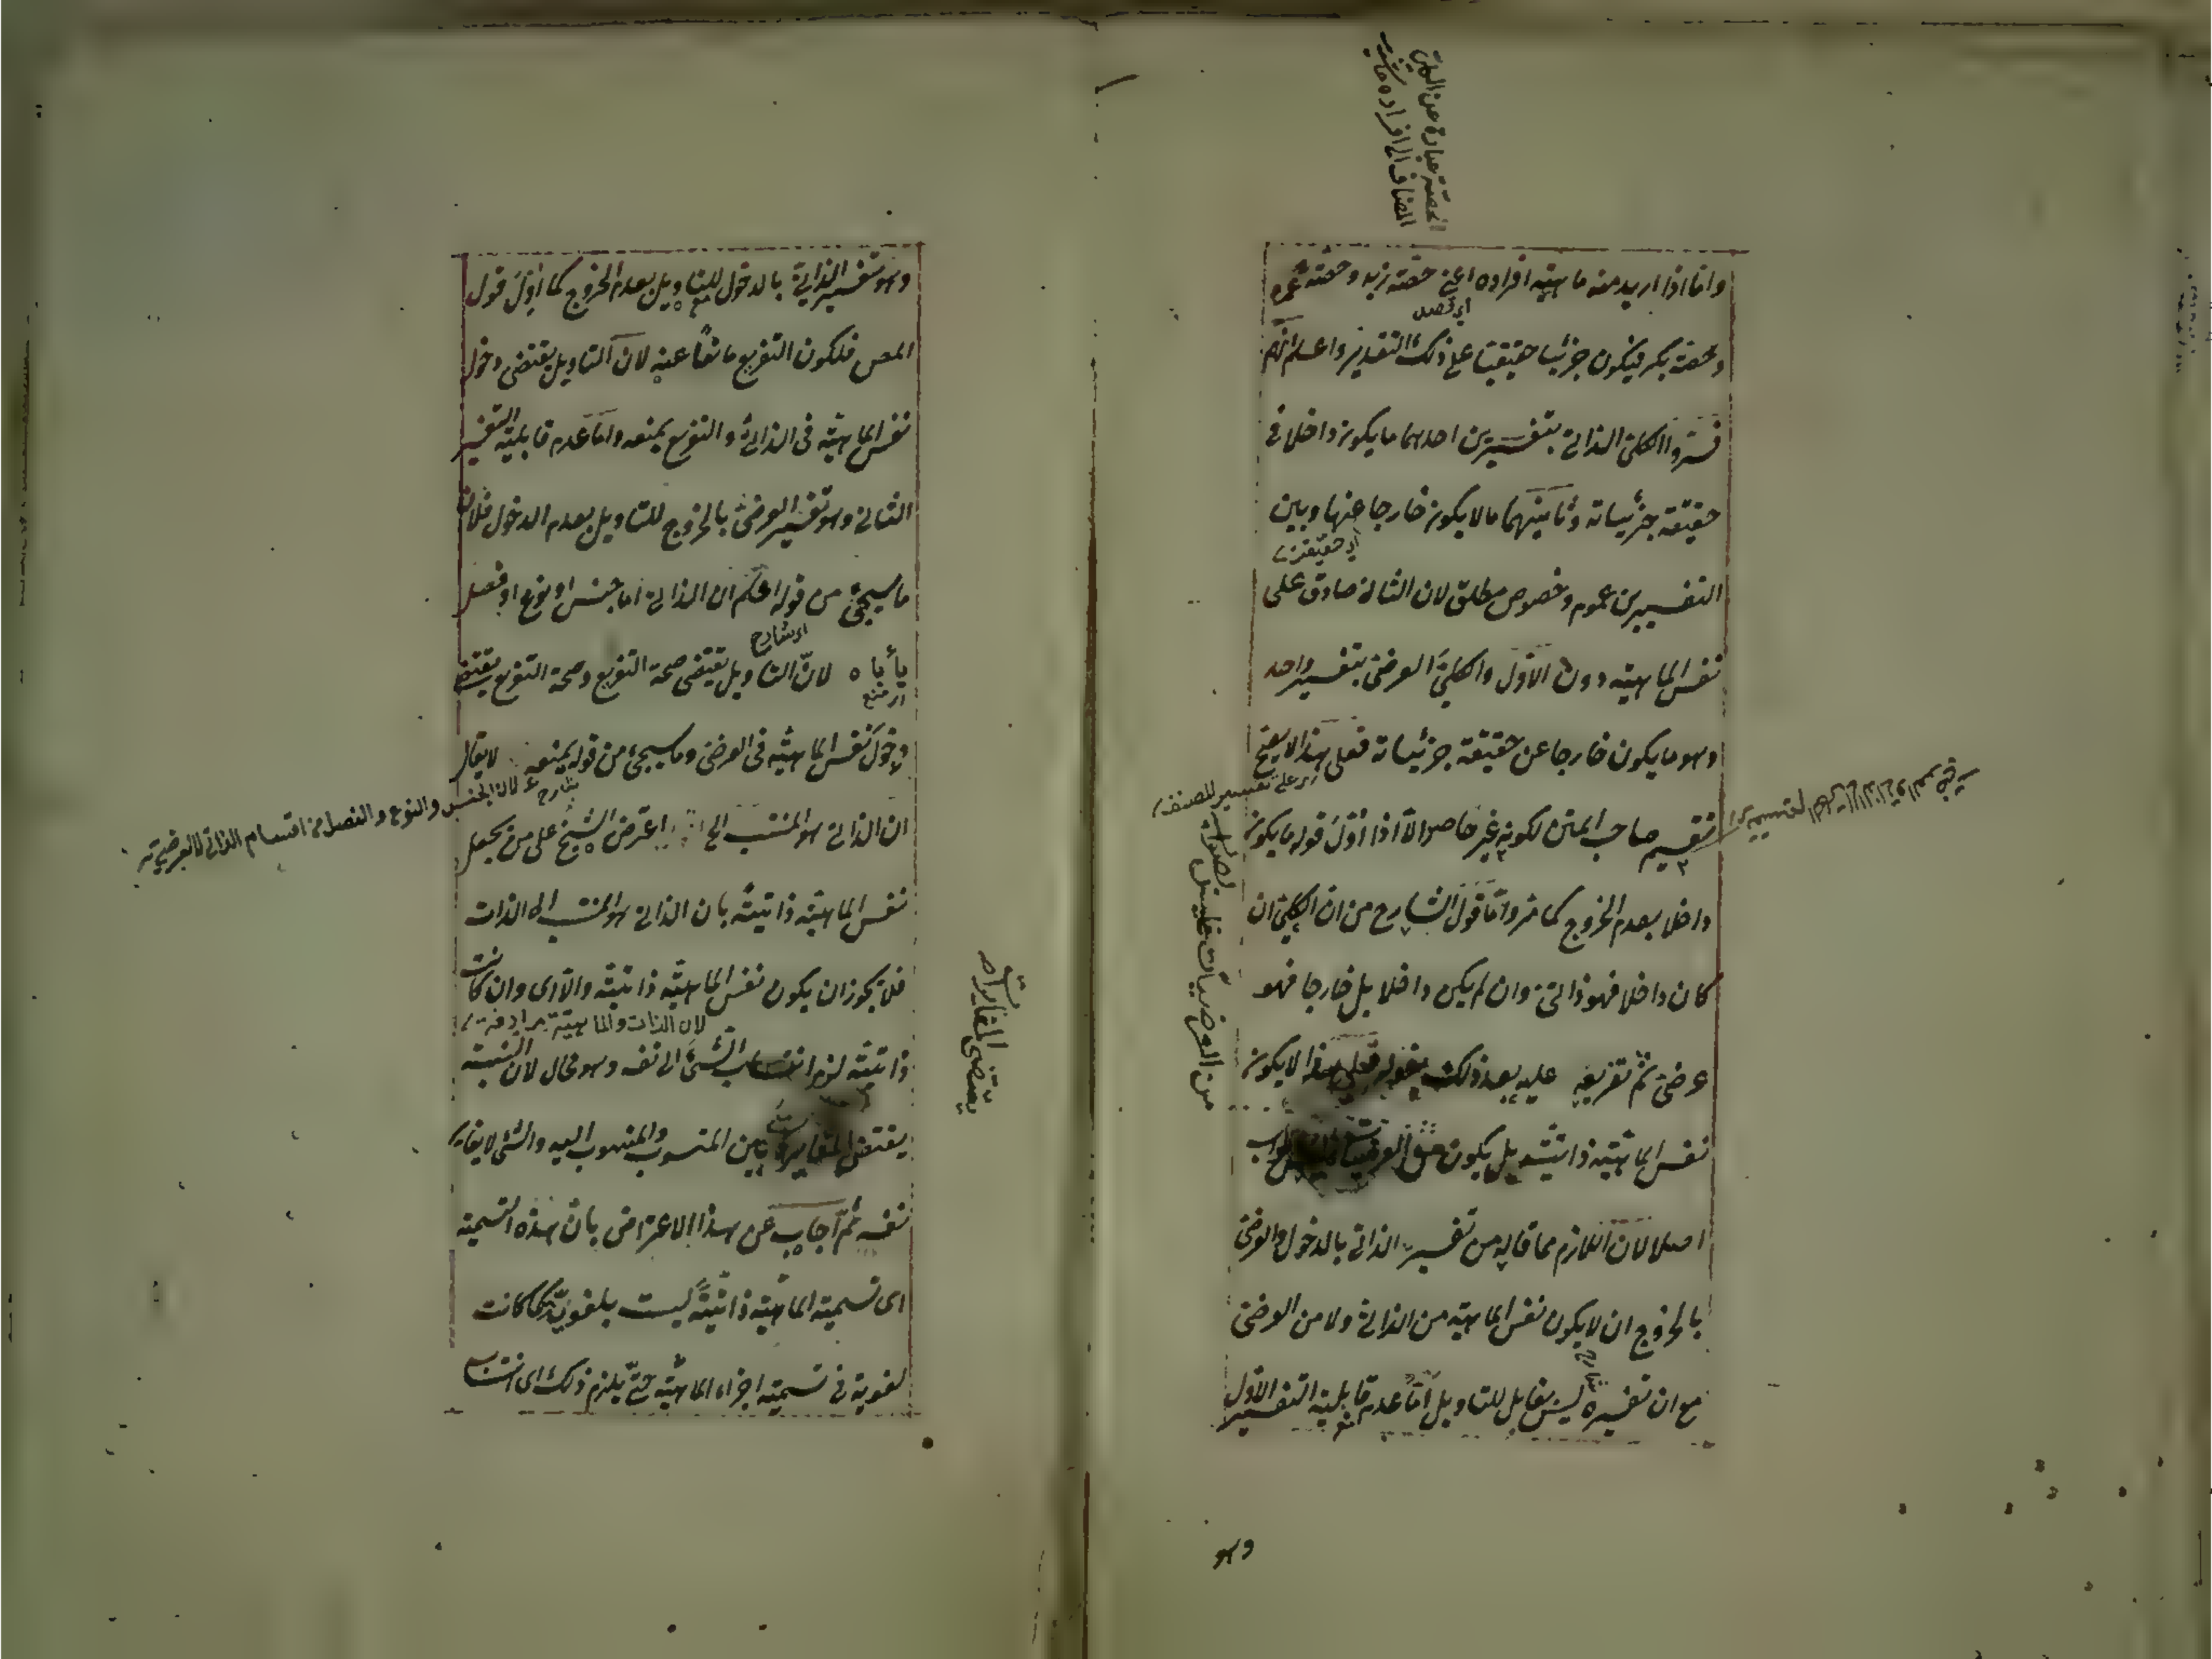 الحصّة عبارة عن الكلي
المضاف الى افراده
واما اذا اريد منه ماهيّة افراده اعني حصّة زيد وحصّة عمرو
وحصّة بكر فيكون جزئيا حقيقيا على ذلك التقدير واعلم انهم
فسّروا الكلي الذاتي بتفسيرين احدهما ما يكون داخلا في
حقيقة جزئياته وثانيهما ما لا يكون خارجا عنها وبين
اي حقيقة
التفسيرين عموم وخصوص مطلق لان الثاني صادق على
نفس الماهيّة دون الاوّل والكليّ العرضي بتفسير واحد
وهو ما يكون خارجا عن حقيقة جزئياته فعلى هذا لا يصحّ
تقسيم صاحب المتن لكونه غير حاصر الا اذا اوّل قوله ما يكون
داخلا بعدم الخروج كما مر وامّا قول الشارح من ان الكليّ ان
كان داخلا فهو ذاتيّ وان لم يكن داخلا بل خارجا فهو
عرضيّ ثم تفريعه عليه بعد ذلك بقوله فعلى هذا لا يكون
نفس الماهيّة ذاتيّة بل يكون من العرضيات فليس بصواب
اصلا لان اللازم مما قاله من تفسير الذاتي بالدخول والعرضي
بالخروج ان لا يكون نفس الماهيّة من الذاتيّ ولا من العرضيّ
مع ان تفسيره ليس بقابل للتاويل امّا عدم قابلية التفسير الاوّل
من العرضيات فليس بصواب
وهو
وهو تفسير الذاتيّ بالدخول للتاويل بعدم الخروج كما اوّل قول
المص فلكون التفريع مانعاً عنه لان التاويل يقتضي دخول
نفس الماهيّة في الذاتيّ والتفريع يمنعه واما عدم قابلية التفسير
الثاني وهو تفسير العرضيّ بالخروج للتاويل بعدم الدخول فلان
ما سيجيئ من قوله اعلم ان الذاتي اما جنس او نوع او فصل
يأباه لانّ التاويل يقتضي صحة التفريع وصحة التفريع يقتضي
دخول نفس الماهيّة في العرضي وما سيجيئ من قوله يمنعه لا يقال
لان الجنس والنوع والفصل من اقسام الذاتي لا العرضي
ان الذاتي هو المنتسب الى اعترض الشيخ على من يجعل
نفس الماهيّة ذاتيّة بان الذاتي هو المنتسب الى الذات
فلا يجوز ان يكون نفس الماهيّة ذاتيّة والّا اى وان كانت
لان الذات والماهيّة مرادفة
ذاتيّة لزم انتساب الشيئ الى نفسه وهو محال لان النسبة
يقتضي المغايرة بين المنسوب والمنسوب اليه والشئ لا يغاير
نفسه ثم اجاب عن هذا الاعتراض بان هذه التسمية
اى تسمية الماهيّة ذاتيّةً ليست بلغويّة كما كانت
لغوية في تسمية اجزاء الماهيّة حتّى يلزم ذلك اى انتساب
يقتضي المغايرة